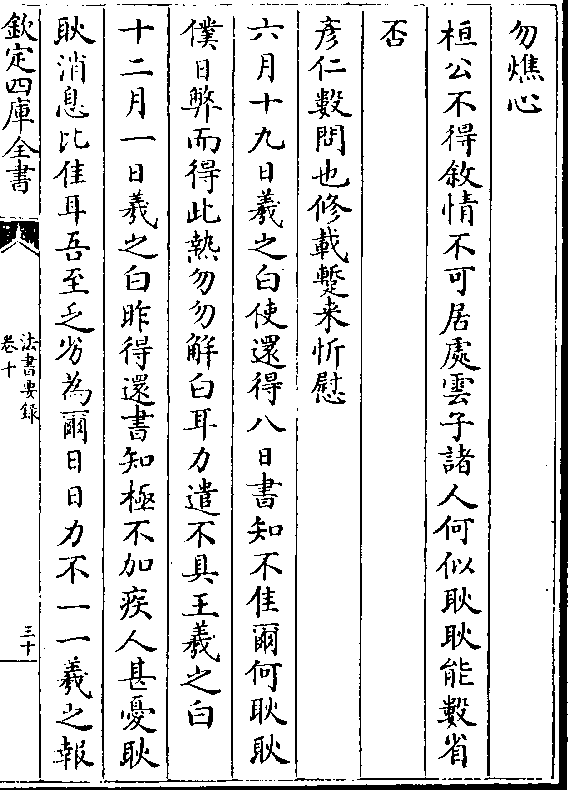 勿燋心
桓公不得敘情不可居處雲子諸人何似耿耿能數省
否
彥仁數問也修載蹔来忻慰
六月十九日羲之白使還得八日書知不佳爾何耿耿
僕日弊而得此熱勿勿解白耳力遣不具王羲之白
十二月一日羲之白昨得還書知極不加疾人甚憂耿
耿消息比佳耳吾至乏劣為爾日日力不一一羲之報
欽定四庫全書
法書要錄
卷十
三十